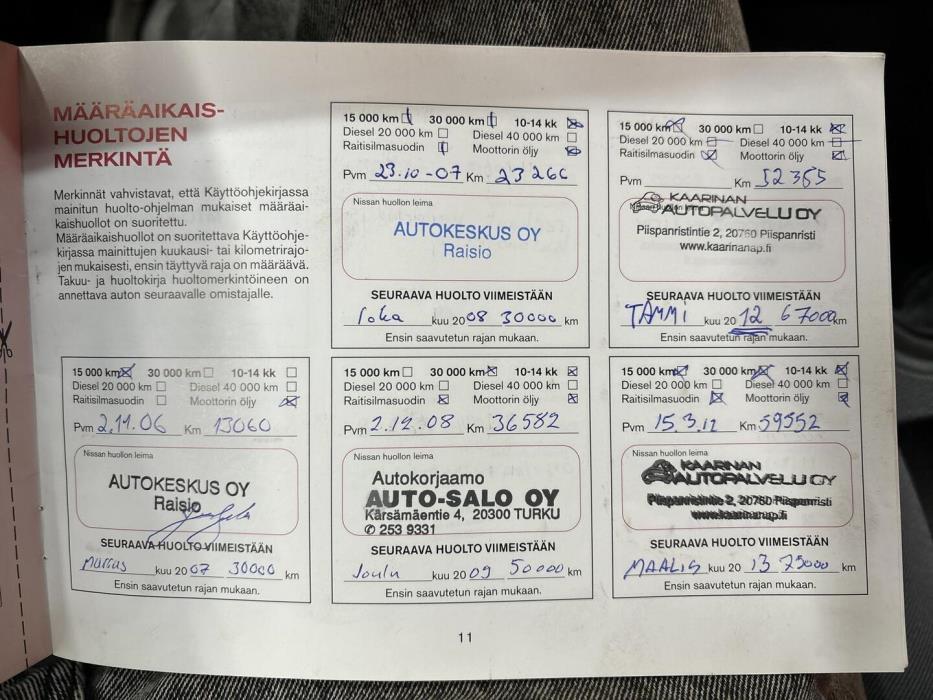 MÄÄRÄAIKAIS-
HUOLTOJEN
MERKINTÄ
Merkinnät vahvistavat, että Käyttöohjekirjassa
mainitun huolto-ohjelman mukaiset määräai-
kaishuollot on suoritettu.
Määräaikaishuollot on suoritettava Käyttöohje-
kirjassa mainittujen kuukausi- tai kilometrirajo-
jen mukaisesti, ensin täyttyvä raja on määräävä.
Takuu- ja huoltokirja huoltomerkintöineen on
annettava auton seuraavalle omistajalle.
15 000 km 30 000 km 10-14 kk
Diesel 20 000 km Diesel 40 000 km
Raitisilmasuodin Moottorin öljy
Pvm 2.11.06 Km 13060
Nissan huollon leima
AUTOKESKUS OY
Raisio
SEURAAVA HUOLTO VIIMEISTÄÄN
Marras kuu 2007 30000 km
Ensin saavutetun rajan mukaan.
15 000 km 30 000 km 10-14 kk
Diesel 20 000 km Diesel 40 000 km
Raitisilmasuodin Moottorin öljy
Pvm 23.10-07 Km 23266
Nissan huollon leima
AUTOKESKUS OY
Raisio
SEURAAVA HUOLTO VIIMEISTÄÄN
loka kuu 2008 30000 km
Ensin saavutetun rajan mukaan.
15 000 km 30 000 km 10-14 kk
Diesel 20 000 km Diesel 40 000 km
Raitisilmasuodin Moottorin öljy
Pvm 2.12.08 Km 36582
Nissan huollon leima
Autokorjaamo
AUTO-SALO OY
Kärsämäentie 4, 20300 TURKU
✆ 253 9331
SEURAAVA HUOLTO VIIMEISTÄÄN
Joulu kuu 2009 50000 km
Ensin saavutetun rajan mukaan.
15 000 km 30 000 km 10-14 kk
Diesel 20 000 km Diesel 40 000 km
Raitisilmasuodin Moottorin öljy
Pvm Km 52355
Nissan
KAARINAN
AUTOPALVELU OY
Piispanristintie 2, 20760 Piispanristi
www.kaarinanap.fi
SEURAAVA HUOLTO VIIMEISTÄÄN
TAMMI kuu 2012 67000 km
Ensin saavutetun rajan mukaan.
15 000 km 30 000 km 10-14 kk
Diesel 20 000 km Diesel 40 000 km
Raitisilmasuodin Moottorin öljy
Pvm 15.3.12 Km 59552
Nissan huollon leima
KAARINAN
AUTOPALVELU OY
Piispanristintie 2, 20760 Piispanristi
www.kaarinanap.fi
SEURAAVA HUOLTO VIIMEISTÄÄN
MAALIS kuu 2013 75000 km
Ensin saavutetun rajan mukaan.
11